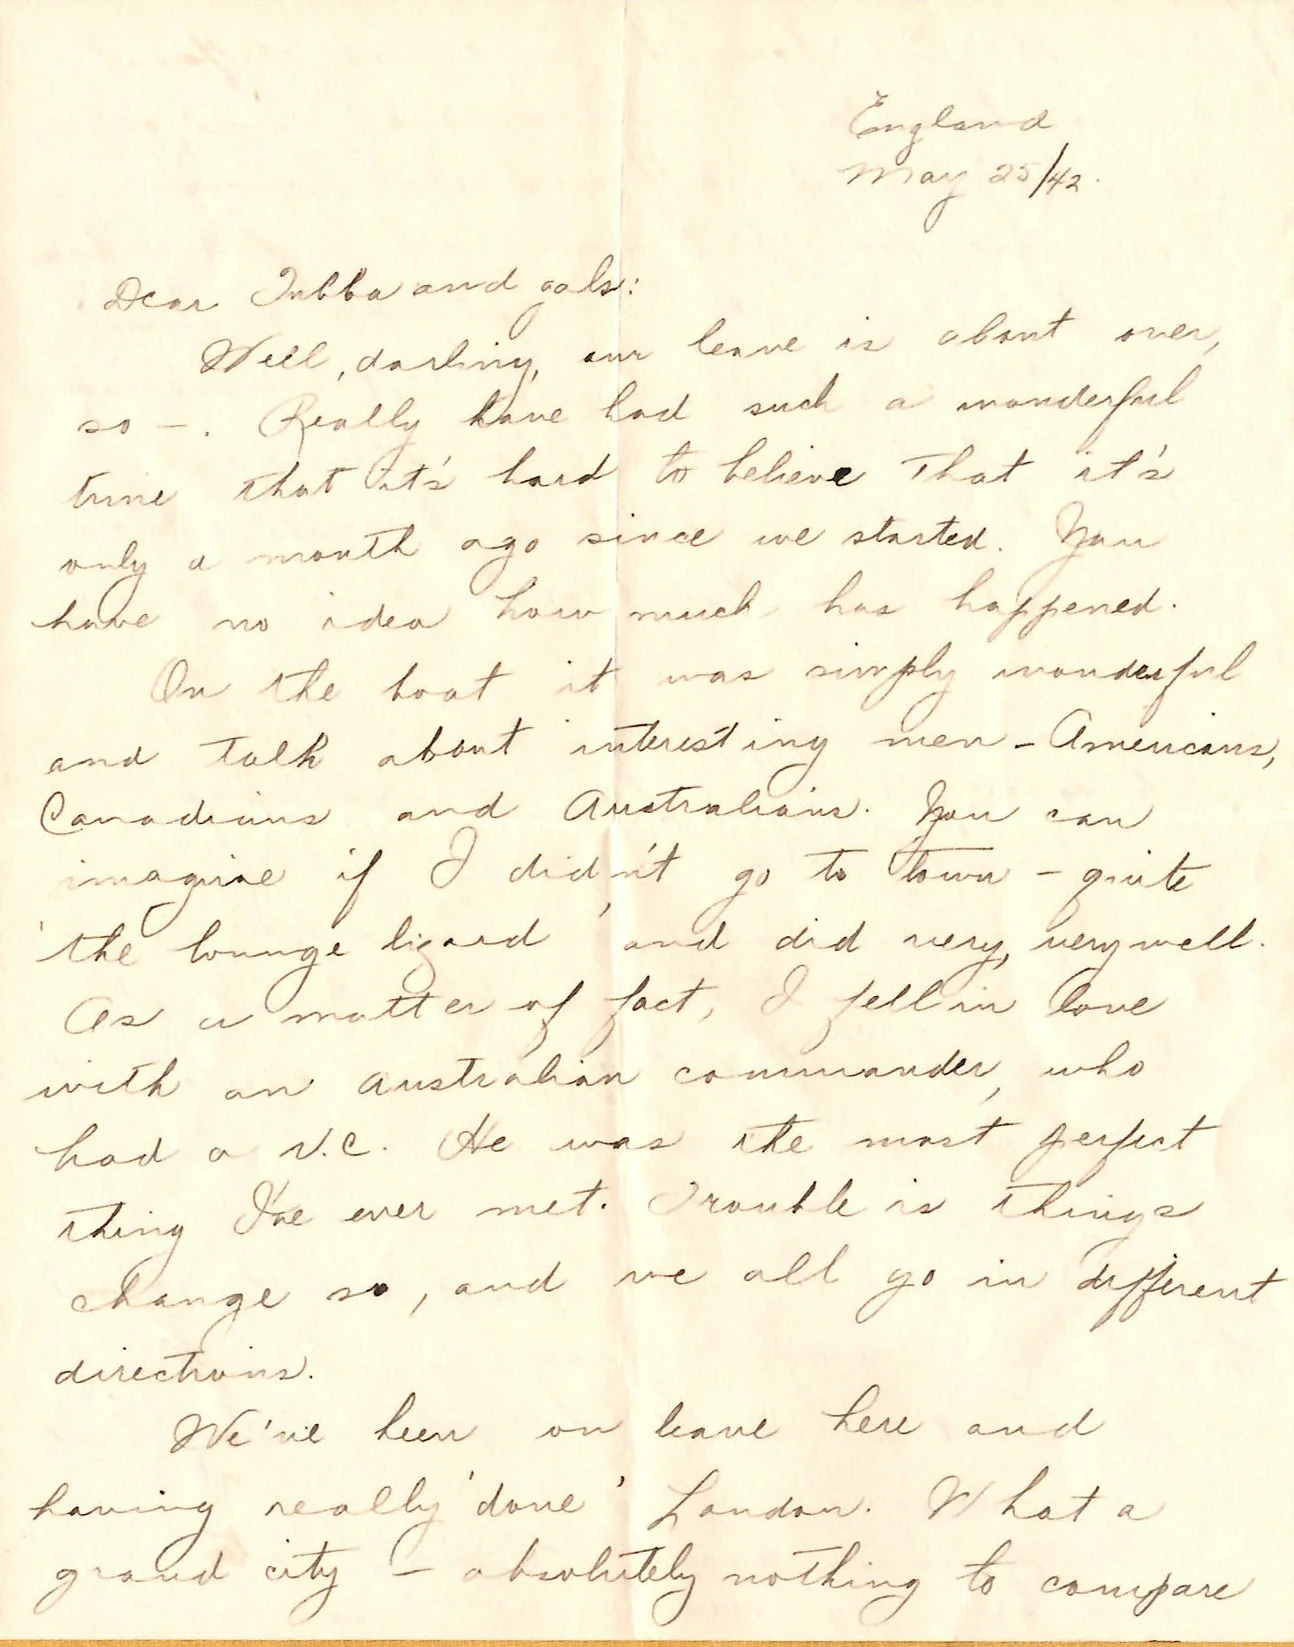 England
May 25/42.
Dear Tubba and gals:
Well, darling, our leave is about over,
so -. Really have had such a wonderful
time that it's hard to believe that it's
only a month ago since we started. You
have no idea how much has happened.
On the boat it was simply wonderful
and talk about interesting men - Americans,
Canadians and Australians. You can
imagine if I didn't go to town - quite
'the lounge lizard' and did very, very well.
As a matter of fact, I fell in love
with an Australian commander, who
had a V.C. He was the most perfect
thing I've ever met. Trouble is things
change so, and we all go in different
directions.
We've been on leave here and
having really 'done' London. What a
grand city - absolutely nothing to compare